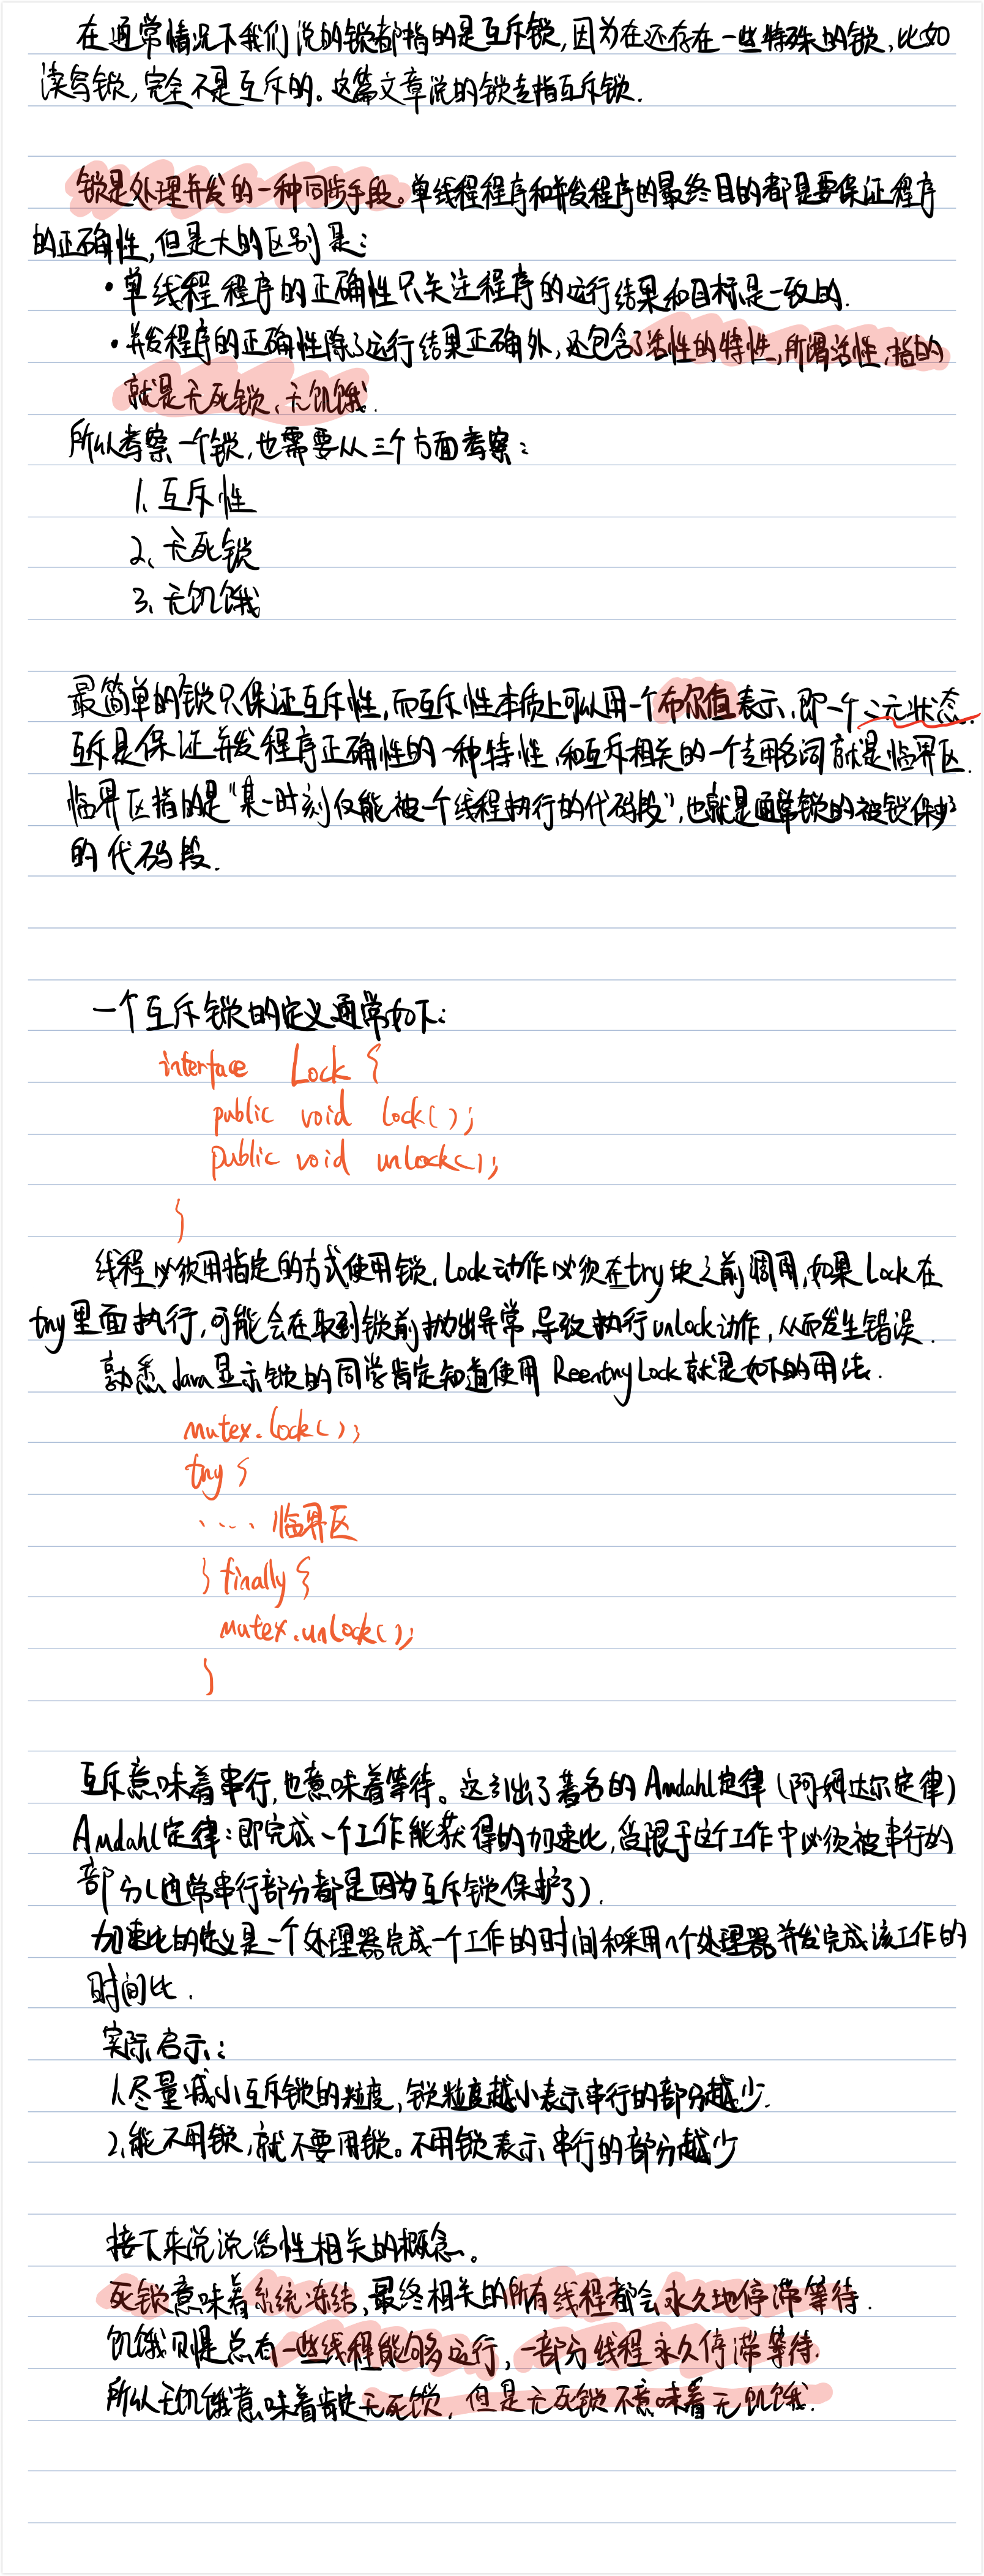 在通常情况下我们说的锁都指的是互斥锁,因为在还存在一些特殊的锁,比如
读写锁,完全不是互斥的。这篇文章说的锁专指互斥锁.
锁是处理并发的一种同步手段。单线程程序和并发程序的最终目的都是要保证程序
的正确性,但是大的区别是:
·单线程程序的正确性只关注程序的运行结果和目标是一致的.
·并发程序的正确性除了运行结果正确外,还包含了活性的特性,所谓活性,指的
就是无死锁、无饥饿.
所以考察一个锁,也需要从三个方面考察:
1、互斥性
2、无死锁
3、无饥饿
最简单的锁只保证互斥性,而互斥性本质上可以用一个布尔值表示,即一个二元状态.
互斥是保证并发程序正确性的一种特性,和互斥相关的一个专用名词就是临界区.
临界区指的是“某一时刻仅能被一个线程执行的代码段”,也就是通常锁的被锁保护
的代码段.
一个互斥锁的定义通常如下:
interface Lock {
public void lock();
public void unlock();
}
线程必须用指定的方式使用锁,Lock动作必须在try块之前调用,如果Lock在
try里面执行,可能会在取到锁前抛出异常,导致执行unlock动作,从而发生错误.
熟悉Java显示锁的同学肯定知道使用ReentryLock就是如下的用法.
mutex.lock();
try {
.... 临界区
} finally {
mutex.unlock();
}
互斥意味着串行,也意味着等待。这引出了著名的Amdahl定律(阿姆达尔定律)
Amdahl定律:即完成一个工作能获得的加速比,受限于这个工作中必须被串行的
部分(通常串行部分都是因为互斥锁保护了).
加速比的定义是一个处理器完成一个工作的时间和采用n个处理器并发完成该工作的
时间比.
实际启示:
1、尽量减小互斥锁的粒度,锁粒度越小表示串行的部分越少.
2、能不用锁,就不要用锁。不用锁表示串行的部分越少
接下来说说活性相关的概念。
死锁意味着系统冻结,最终相关的所有线程都会永久地停滞等待.
饥饿则是总有一些线程能够运行,一部分线程永久停滞等待.
所以无饥饿意味着肯定无死锁,但是无死锁不意味着无饥饿.